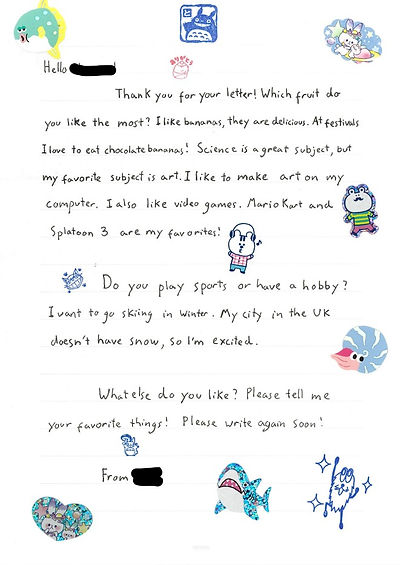 と
ありがとう
Hello
Thank you for your letter! Which fruit do
you like the most? I like bananas, they are delicious. At festivals
I love to eat chocolate bananas! Science is a great subject, but
my favorite subject is art. I like to make art on my
computer. I also like video games. Mario Kart and
Splatoon 3 are my favorites!
Do you play sports or have a hobby?
I want to go skiing in winter. My city in the UK
doesn't have snow, so I'm excited.
What else do you like? Please tell me
your favorite things! Please write again soon!
From